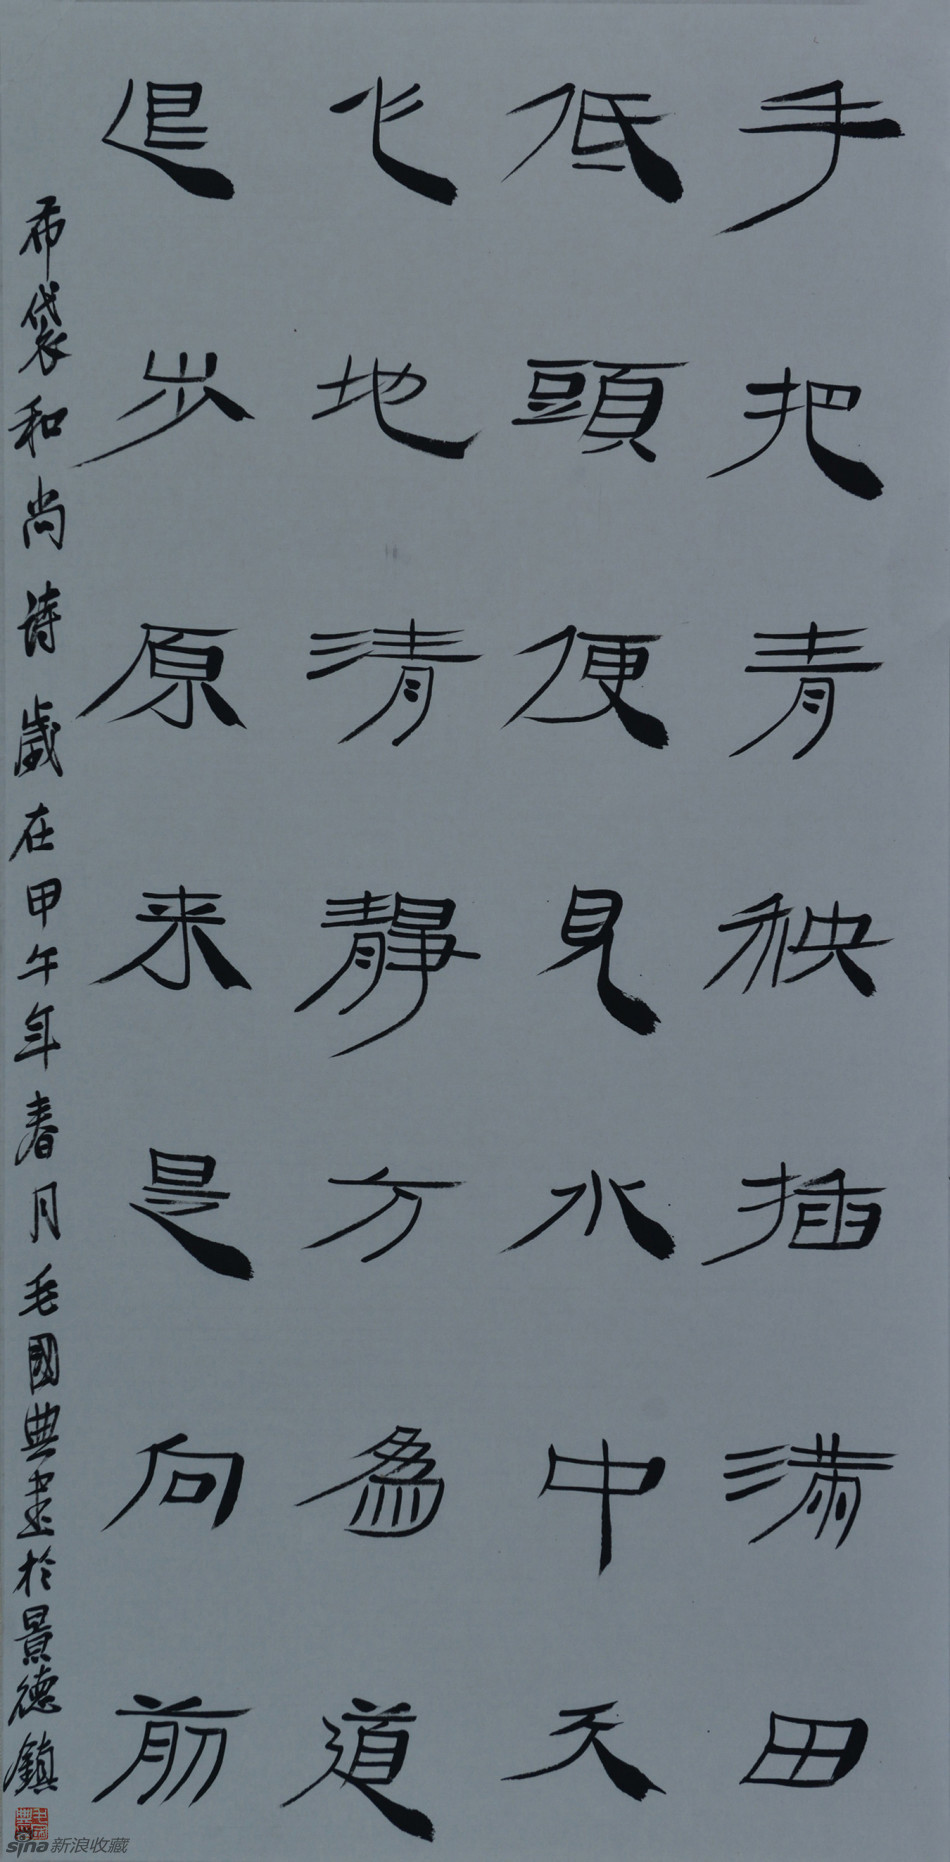 手把青秧插满田
低頭便見水中天
心地清靜方為道
退步原来是向前
布袋和尚诗歲在甲午年春月毛國典書於景德鎮
sina新浪收藏